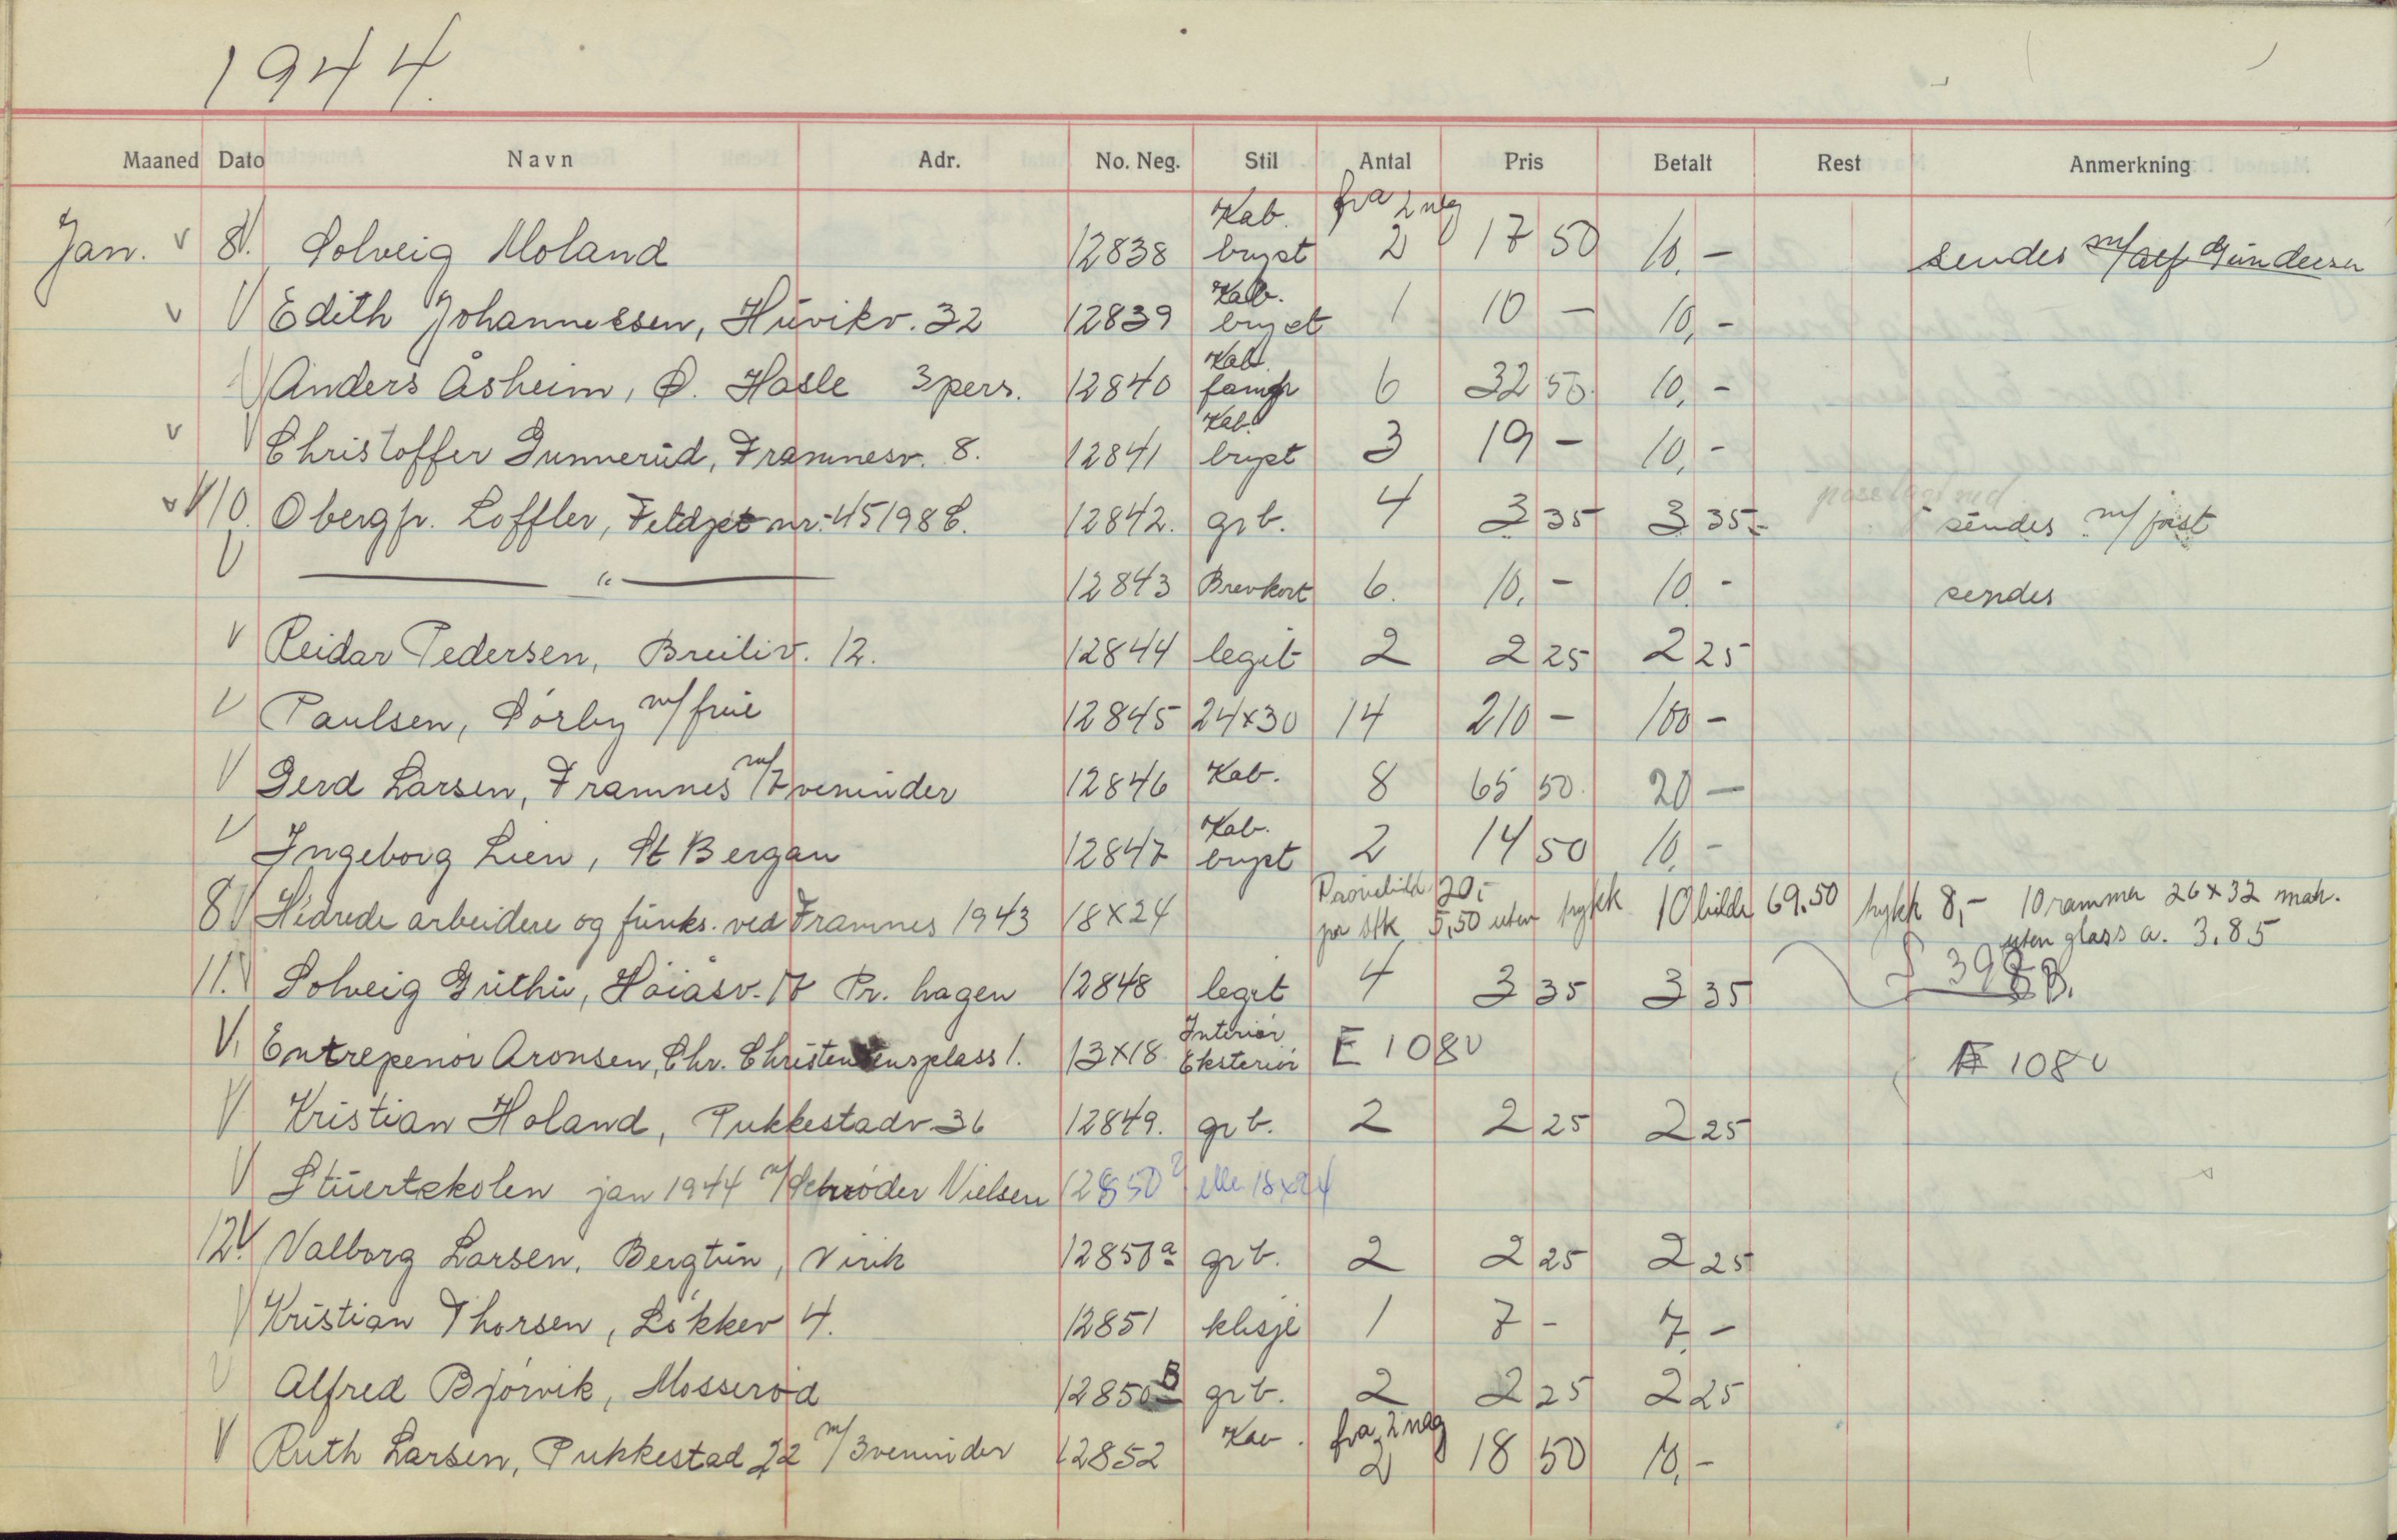 1944.
Maaned Dato Navn Adr. No. Neg. Stil Antal Pris Betalt Rest Anmerkning
Jan. v 8. Solveig Moland 12838 Kab. bryst fra 2 neg 2 17 50 10,- sendes m/ Alf Gundersen
v V Edith Johannessen, Huvikv. 32 12839 Kab. bryst 1 10 - 10,-
V Anders Åsheim, Ø. Hasle 3 pers. 12840 Kab. 6 32 50 10,-
v V Christoffer Gunnerud, Framnesv. 8. 12841 Kab. bryst 3 19 - 10,-
v V 10. Obergfr. Loffler, Feldpst nr. 45198 C. 12842. grb. 4 3 35 3 35 - sendes m/ post
V — " — 12843 Brevkort 6. 10,- 10.- sendes
V Reidar Pedersen, Breiliv. 12. 12844 legit 2 2 25 2 25
V Paulsen, Sörby m/ frue 12845 24x30 14 210 - 100 -
V Gerd Larsen, Framnes m/ 7 veninder 12846 Kab. 8 65 50 20 -
V Ingeborg Lien, St Bergan 12847 Kab. bryst 2 14 50 10,-
8 V Hedrede arbeidere og funks. ved Framnes 1943 18x24 Prøvebild 20,- pr stk 5,50 uten trykk 10 bilde 69.50 trykk 8,- 10 rammer 26x32 mah.
uten glass a. 3.85
11. V Solveig Guthu, Höiåsv. 17 Pr. hagen 12848 legit 4 3 35 3 35
V. Entrepenör Aronsen, Chr. Christensensplass 1. 13x18 Interiör Eksteriör E 1080 E 1080
V Kristian Holand, Pukkestadv 36 12849. grb. 2 2 25 2 25
V Stuertskolen jan 1944 v/ Schröder Nielsen 12850? elle 18x24
12. V Valborg Larsen, Bergtun, Virik 12850a grb. 2 2 25 2 25
V Kristian Thorsen, Lökkev 4. 12851 klisje 1 7 - 7,-
V Alfred Björvik, Mosseröd 12850 B grb. 2 2 25 2 25
V Ruth Larsen, Pukkestad 22 m/ 3 veninder 12852 Kab. fra 2 neg 2 18 50 10,-